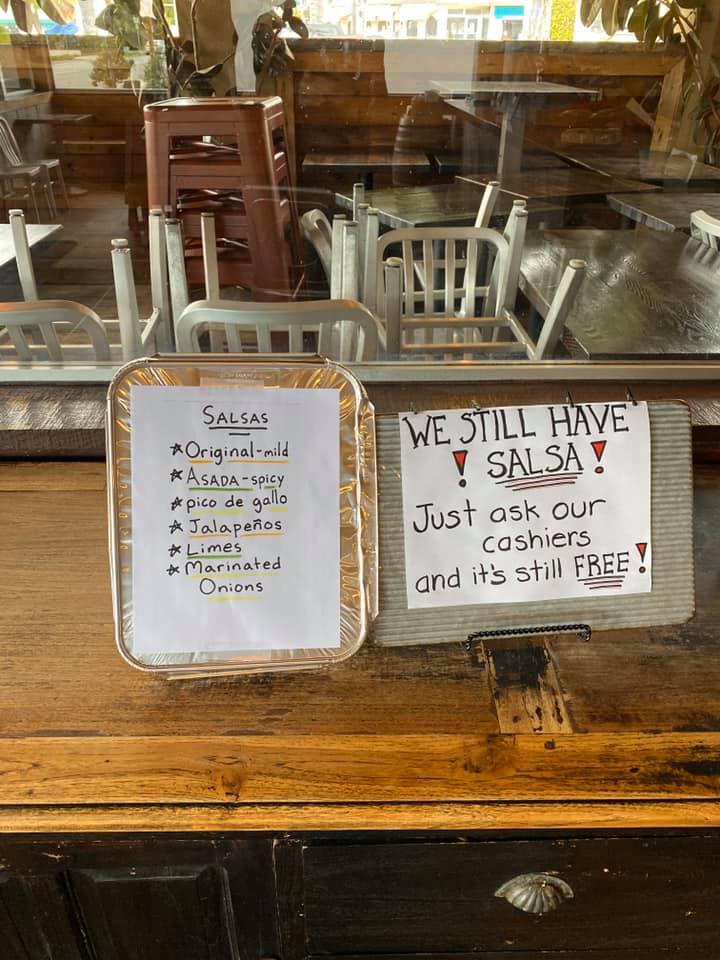 SALSAS
* Original-mild
* ASADA-spicy
* pico de gallo
* Jalapeños
* Limes
* Marinated
Onions
WE STILL HAVE
! SALSA !
Just ask our
cashiers
and it's still FREE!